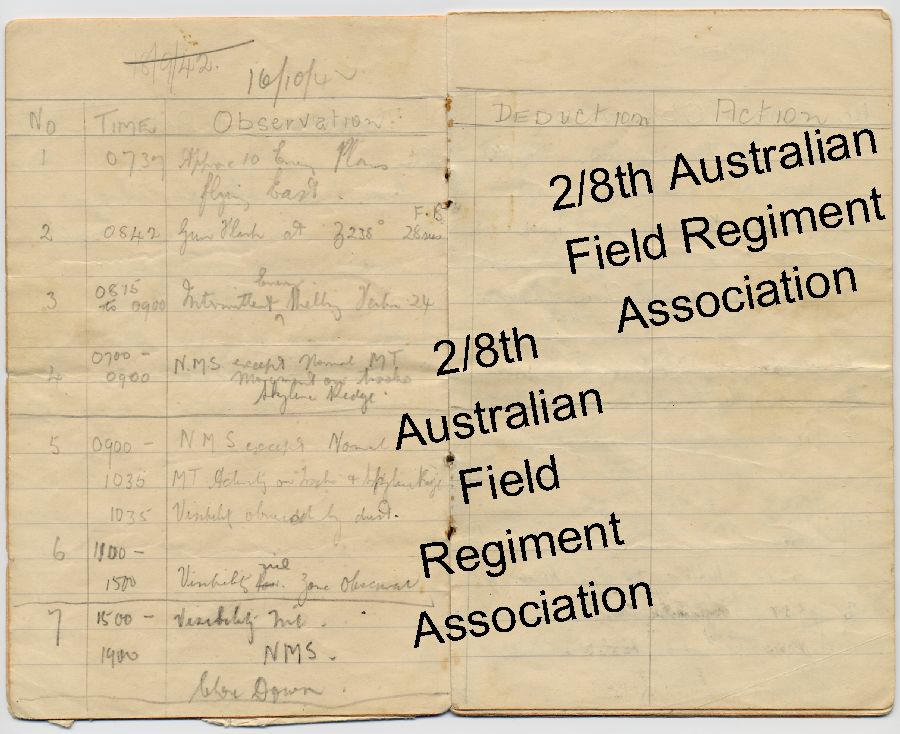 18/9/42.
16/10/42
No TIME Observation.
DEDUCTION ACTION
1 0737 Approx 10 Enemy Planes
flying East.
2 0842 Gun Flash at 238° F.B.
3 0815 to 0900 Intermittent Enemy Shelling 24
4 0700 - 0900 N.M.S except Normal MT
Movement on tracks
Skyline Ridge.
5 0900 - NMS except Normal
1035 MT Activity on Tracks +
1035 Visibility obscured by dust.
6 1100 -
1500 Visibility nil. Zone Obscured
7 1500 - Visibility Nil.
1900 NMS.
Close Down.
2/8th Australian
Field Regiment
Association
2/8th
Australian
Field
Regiment
Association